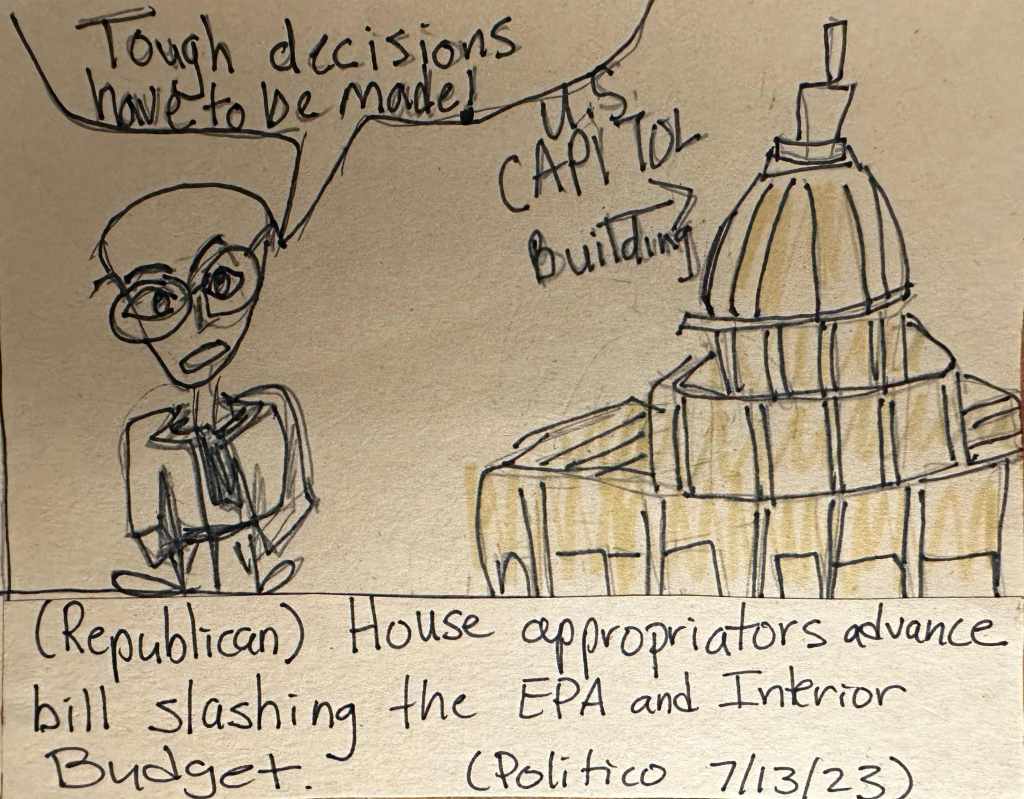 Tough decisions
have to be made!
U.S.
CAPITOL
Building
(Republican) House appropriators advance
bill slashing the EPA and Interior
Budget. (Politico 7/13/23)